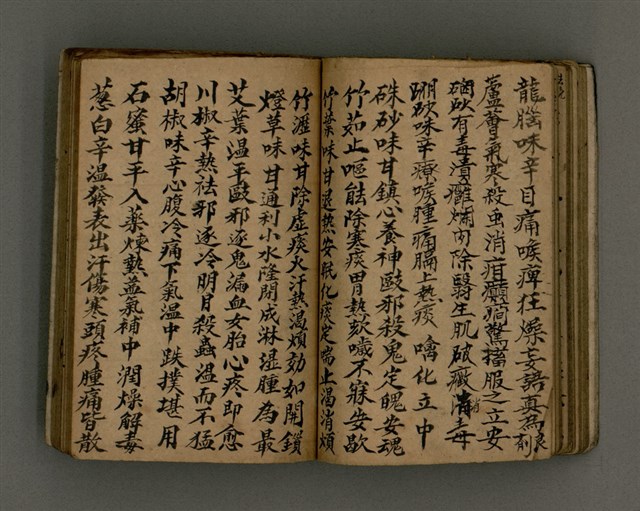 龍腦味辛目痛喉痺狂燥妄語真為良剤
蘆薈氣寒殺虫消疳癲癇驚搐服之立安
硇砂有毒潰癰爛肉除翳生肌破癥消毒
硼砂味辛療喉腫痛膈上熱痰噙化立中
硃砂味甘鎮心養神敺邪殺鬼定魄安魂
竹茹止嘔能除寒痰胃熱欬噦不寐安歇
竹葉味甘退熱安眠化痰定喘止渴消煩
竹瀝味甘除虛痰火汗熱渴煩効如開鎖
燈草味甘通利小水隆閉成淋湿腫為最
艾葉温平敺邪逐鬼漏血女胎心疼即愈
川椒辛熱祛邪逐冷明目殺蟲温而不猛
胡椒味辛心腹冷痛下氣温中跌撲堪用
石蜜甘平入薬煉熟益氣補中潤燥解毒
葱白辛温發表出汗傷寒頭疼腫痛皆散